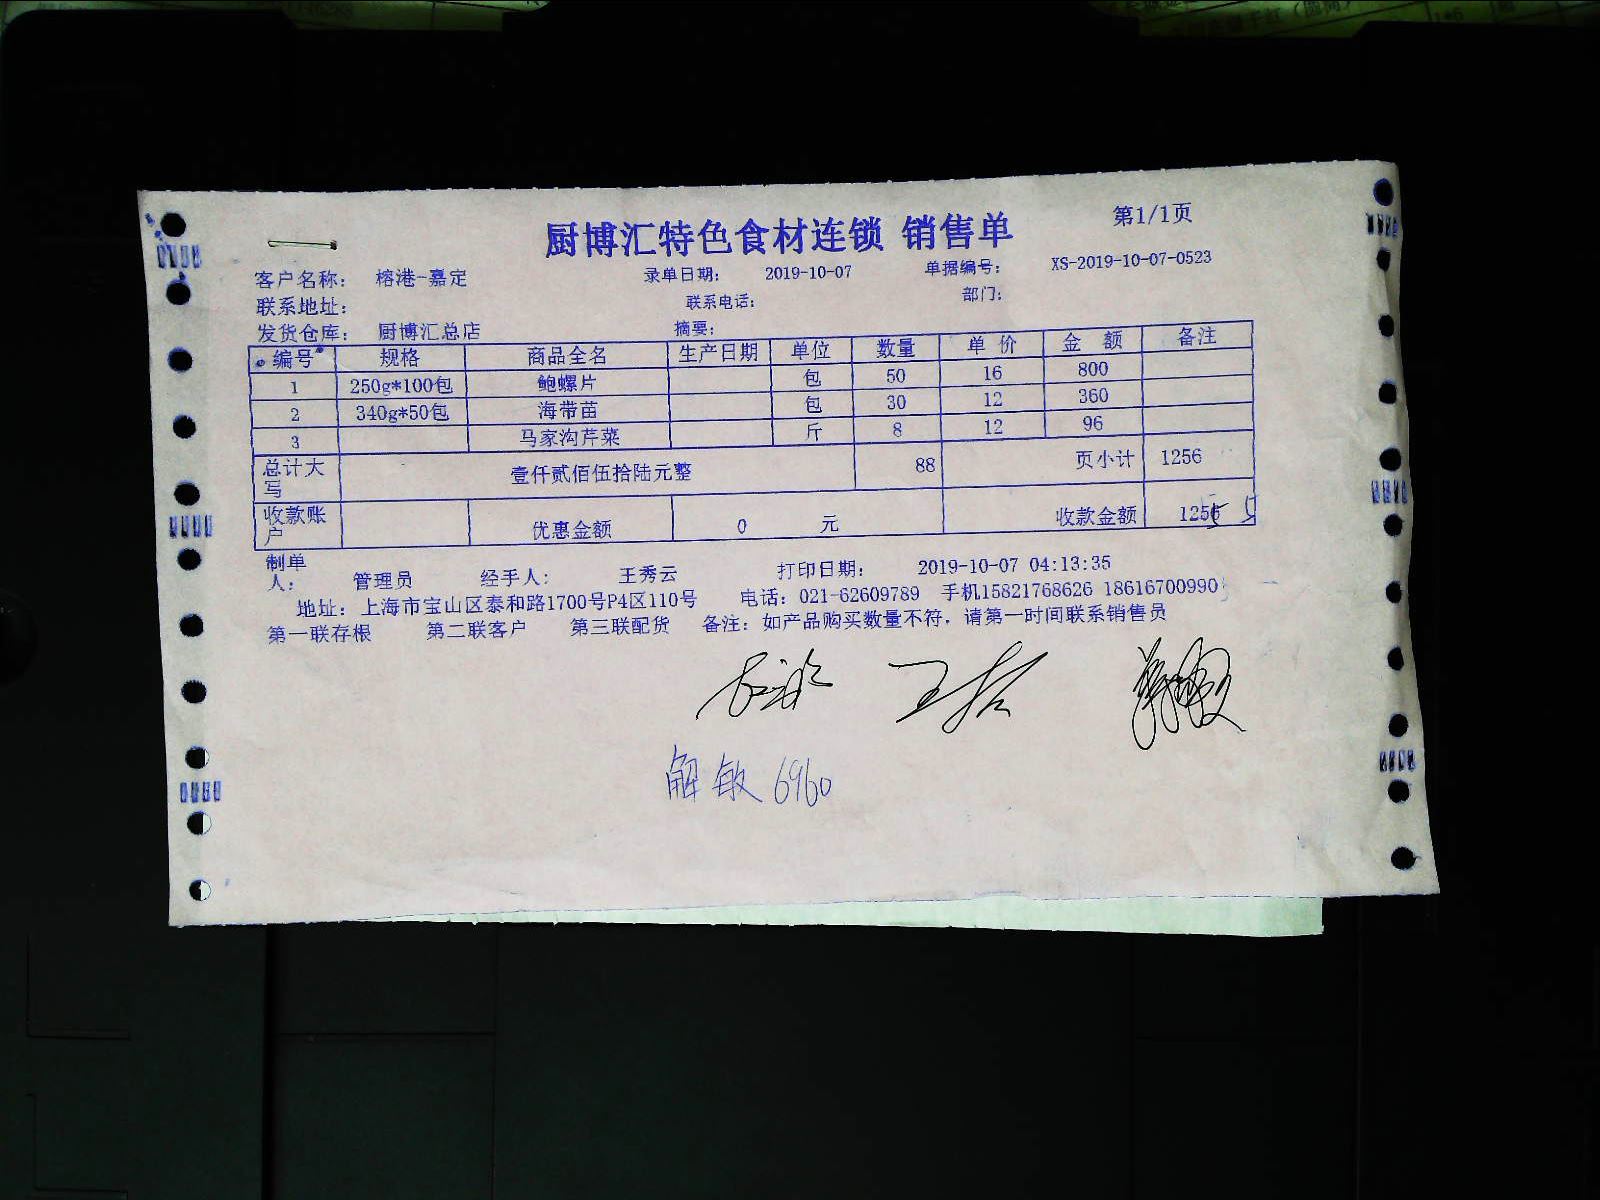 厨博汇特色食材连锁 销售单 第1/1页
客户名称: 榕港-嘉定 录单日期: 2019-10-07 单据编号: XS-2019-10-07-0523
联系地址: 联系电话: 部门:
发货仓库: 厨博汇总店 摘要:
编号 规格 商品全名 生产日期 单位 数量 单价 金额 备注
1 250g*100包 鲍螺片 包 50 16 800
2 340g*50包 海带苗 包 30 12 360
3 马家沟芹菜 斤 8 12 96
总计大写 壹仟贰佰伍拾陆元整 88 页小计 1256
收款账户 优惠金额 0 元 收款金额 1256
制单人: 管理员 经手人: 王秀云 打印日期: 2019-10-07 04:13:35
地址: 上海市宝山区泰和路1700号P4区110号 电话: 021-62609789 手机15821768626 18616700990
第一联存根 第二联客户 第三联配货 备注: 如产品购买数量不符, 请第一时间联系销售员
解敏 6960